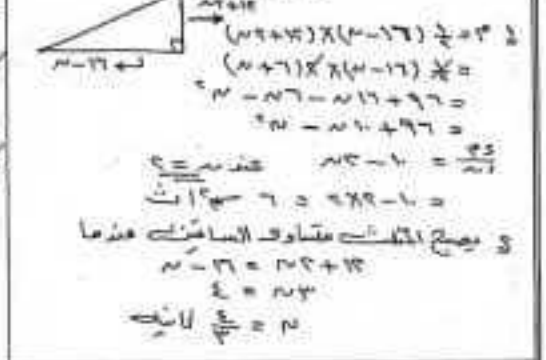 ١٢+٢ن
١٦-ن
م = ½ (١٦-ن)×(١٢+٢ن)
= (١٦-ن)×(٦+ن)
= ٩٦+١٦ن-٦ن-ن²
= ٩٦+١٠ن-ن²
دم/دن = ١٠-٢ن عند ن=٢
= ١٠-٢×٢ = ٦ سم²/ث
يصبح المثلث متساوى الساقين عندما
١٢+٢ن = ١٦-ن
٣ن = ٤
ن = ٤/٣ ثانية